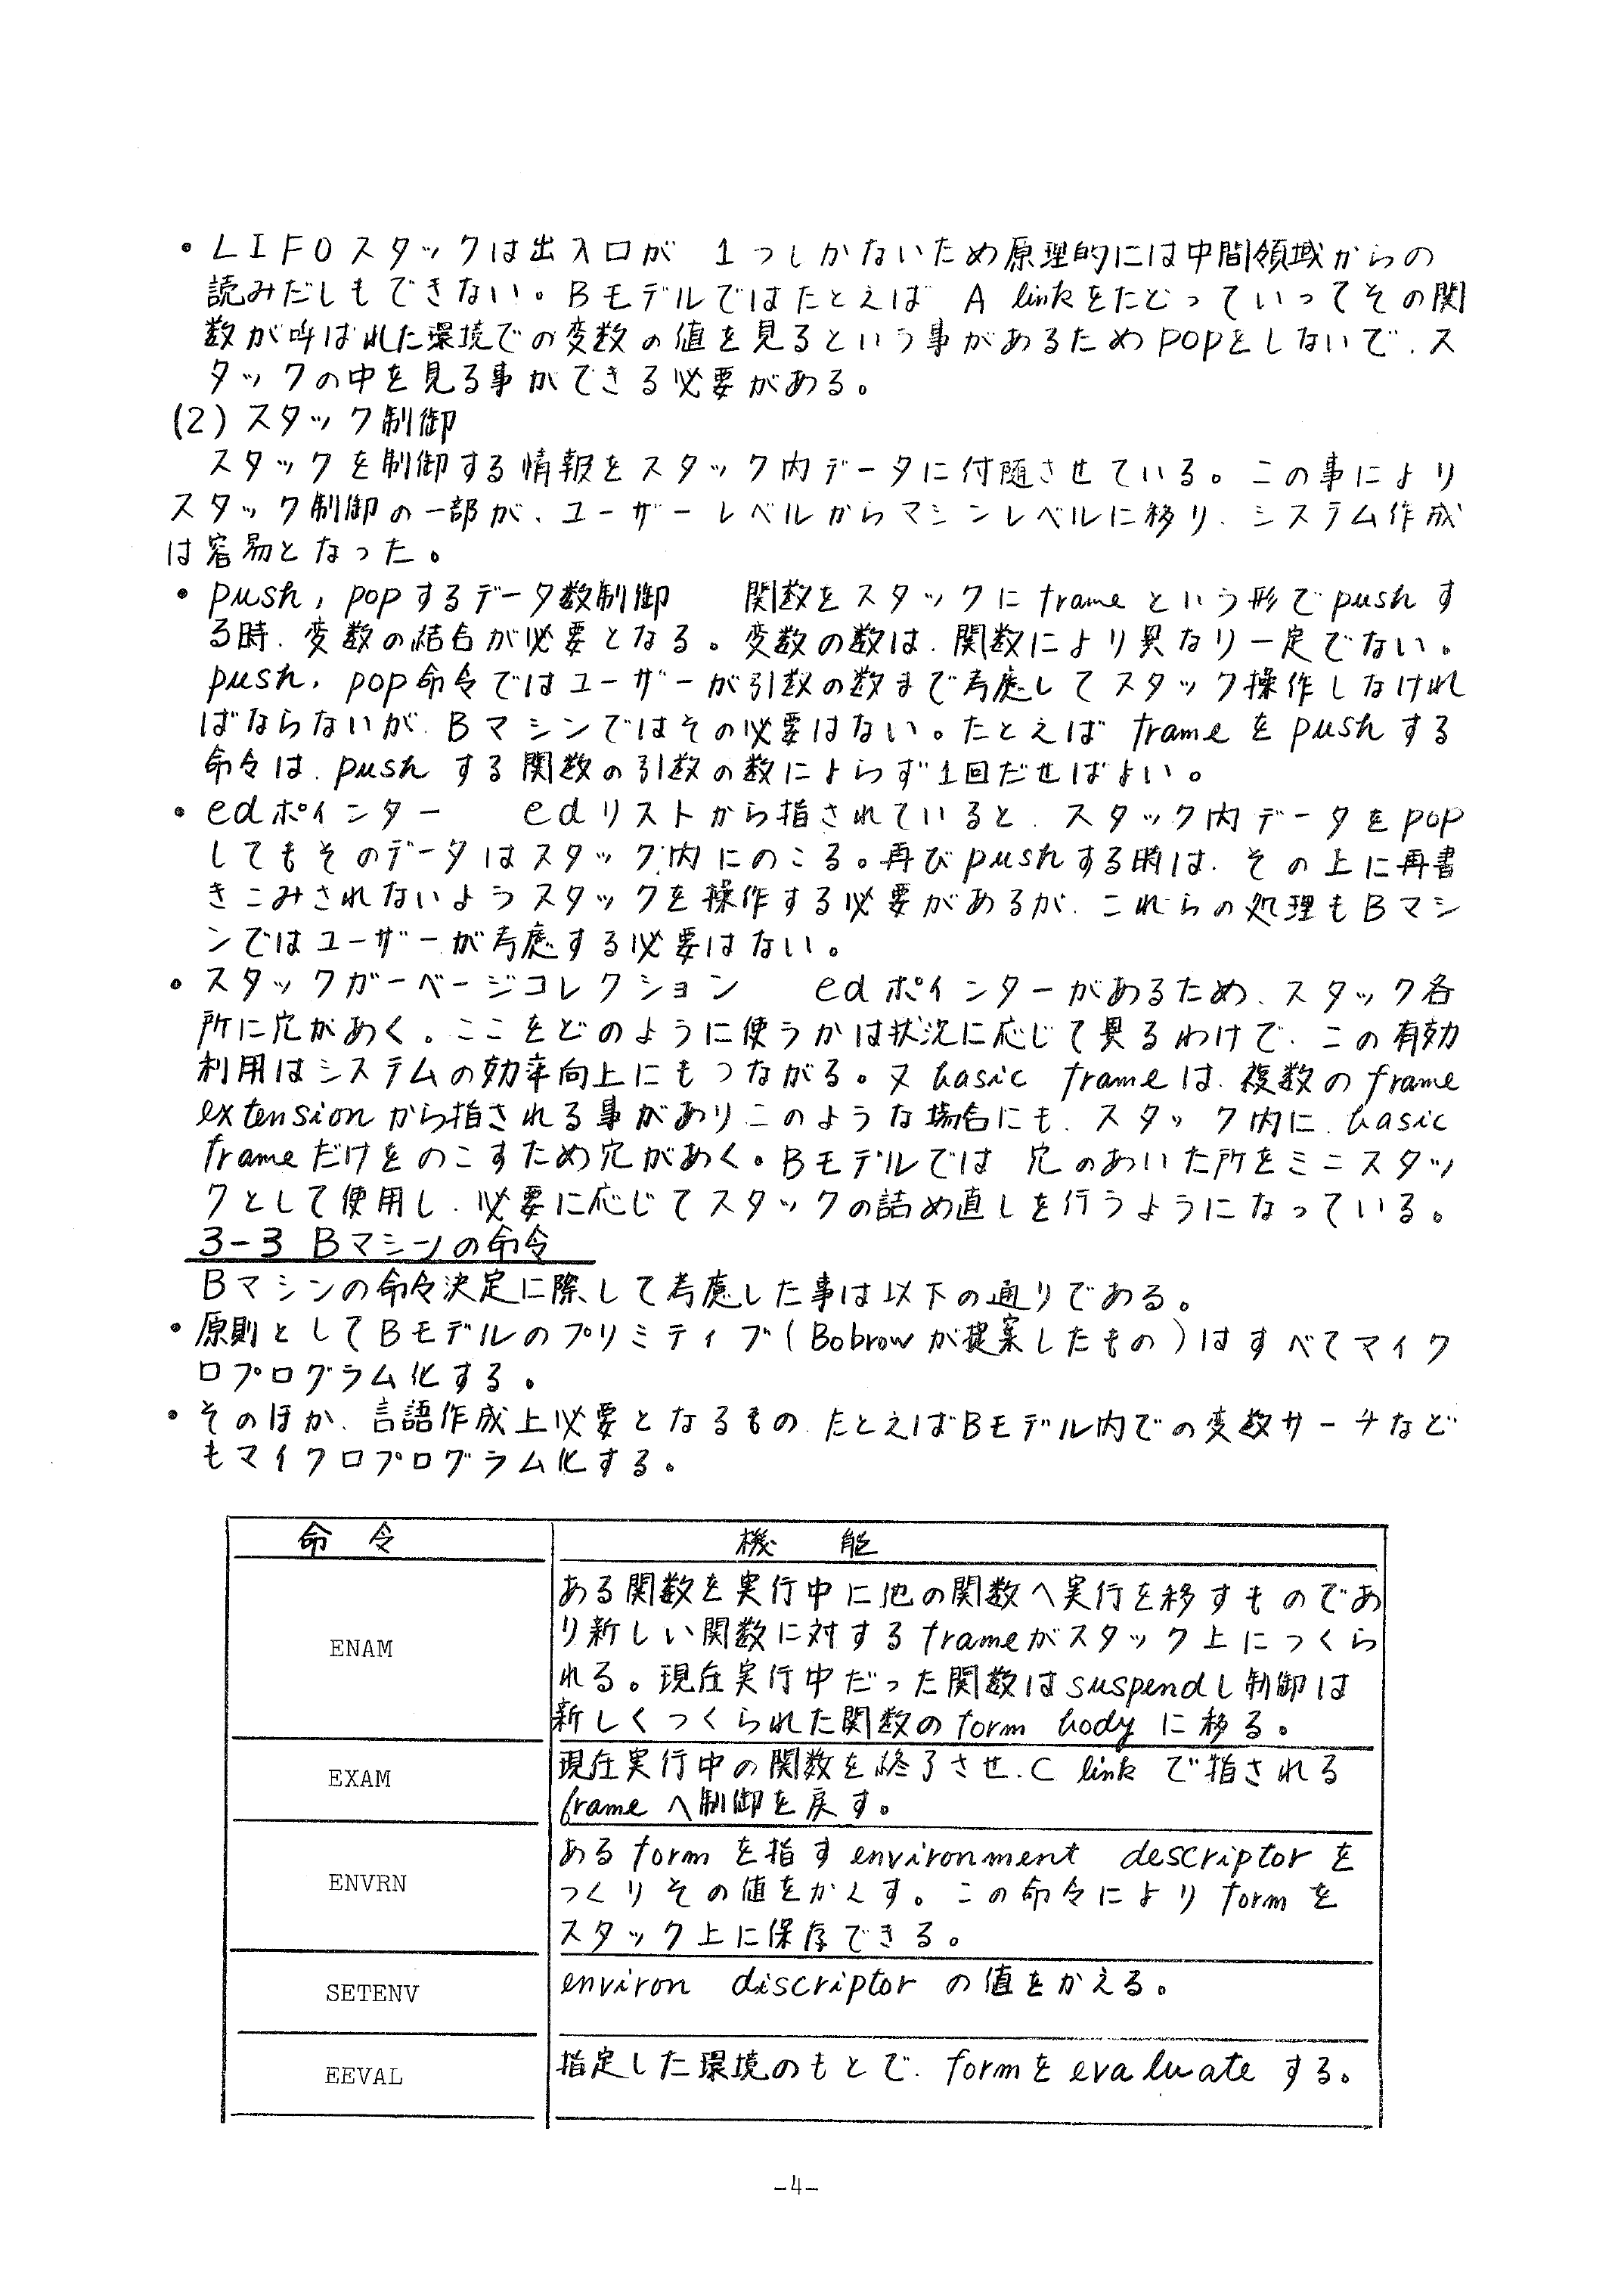 • LIFOスタックは出入口が 1つしかないため原理的には中間領域からの
読みだしもできない。Bモデルではたとえば A linkをたどっていってその関
数が呼ばれた環境での変数の値を見るという事があるためpopをしないで、ス
タックの中を見る事ができる必要がある。
(2) スタック制御
スタックを制御する情報をスタック内データに付随させている。この事により
スタック制御の一部が、ユーザーレベルからマシンレベルに移り、システム作成
は容易となった。
• push, popするデータ数制御 関数をスタックにframeという形でpushす
る時、変数の結合が必要となる。変数の数は、関数により異なり一定でない。
push, pop命令ではユーザーが引数の数まで考慮してスタック操作しなけれ
ばならないが、Bマシンではその必要はない。たとえば frameをpushする
命令は、pushする関数の引数の数によらず1回だせばよい。
• edポインター edリストから指されていると、スタック内データをpop
してもそのデータはスタック内にのこる。再びpushする時は、その上に再書
きこみされないようスタックを操作する必要があるが、これらの処理もBマシ
ンではユーザーが考慮する必要はない。
• スタックガーベージコレクション edポインターがあるため、スタック各
所に穴があく。ここをどのように使うかは状況に応じて異るわけで、この有効
利用はシステムの効率向上にもつながる。又 basic frameは、複数のframe
extensionから指される事がありこのような場合にも、スタック内に、basic
frameだけをのこすため穴があく。Bモデルでは 穴のあいた所をミニスタッ
クとして使用し、必要に応じてスタックの詰め直しを行うようになっている。
3-3 Bマシンの命令
Bマシンの命令決定に際して考慮した事は以下の通りである。
• 原則としてBモデルのプリミティブ(Bobrowが提案したもの)はすべてマイク
ロプログラム化する。
• そのほか、言語作成上必要となるもの、たとえばBモデル内での変数サーチなど
もマイクロプログラム化する。
命 令 機 能
ENAM
ある関数を実行中に他の関数へ実行を移すものであ
り新しい関数に対するframeがスタック上につくら
れる。現在実行中だった関数はsuspendし制御は
新しくつくられた関数のform bodyに移る。
EXAM
現在実行中の関数を終了させ、C linkで指される
frameへ制御を戻す。
ENVRN
あるformを指すenvironment descriptorを
つくりその値をかえす。この命令によりformを
スタック上に保存できる。
SETENV
environ discriptorの値をかえる。
EEVAL
指定した環境のもとで、formをevaluateする。
-4-